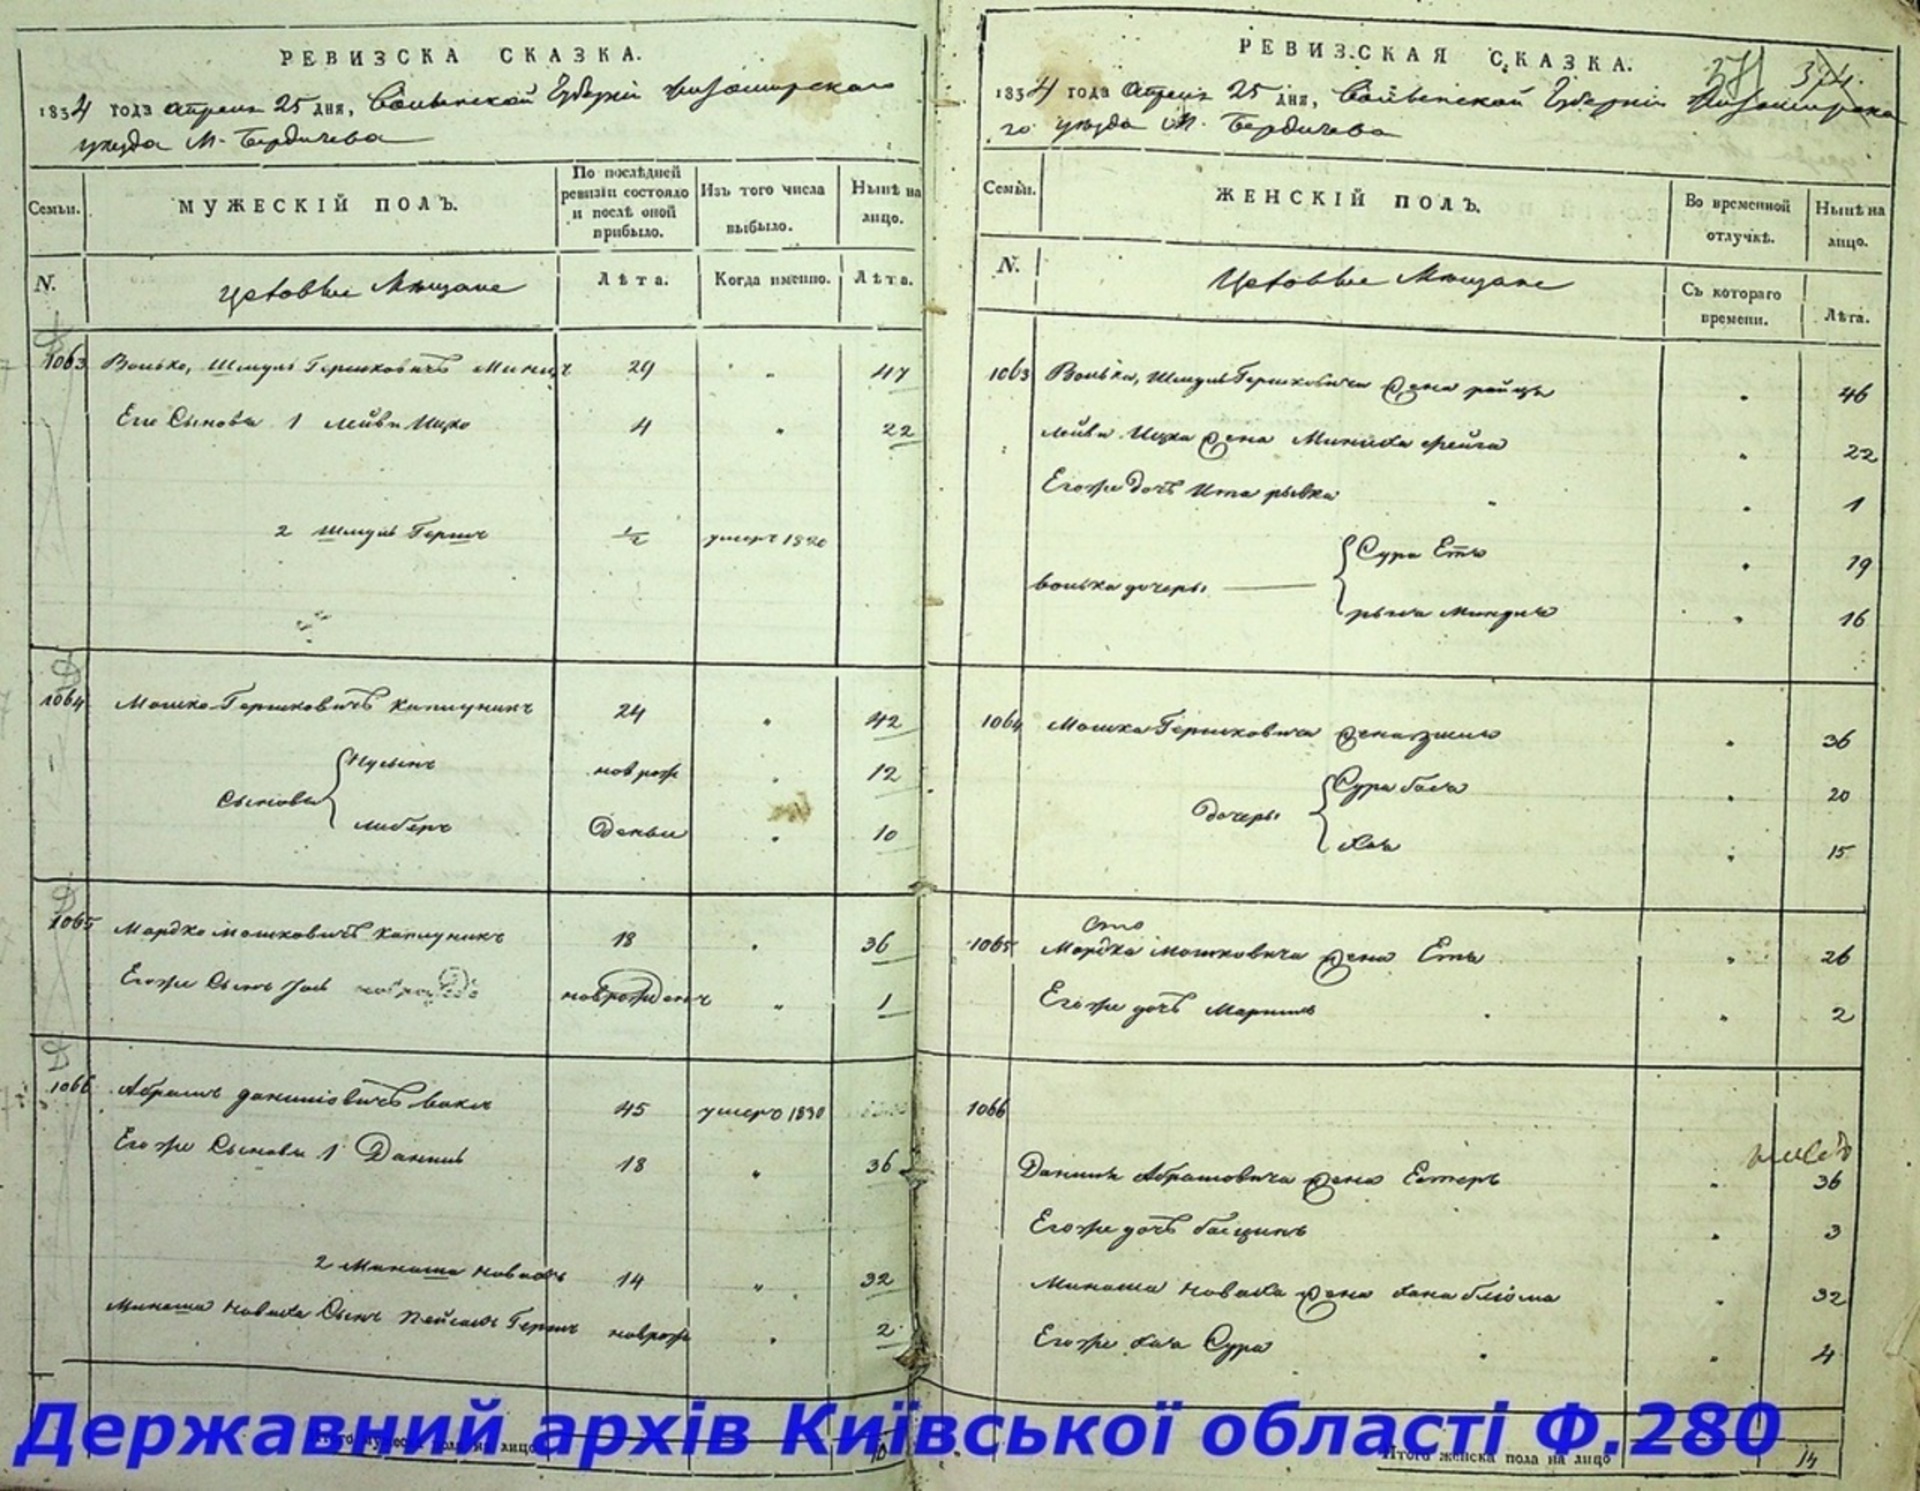 РЕВИЗСКА СКАЗКА.
1834 года Апреля 25 дня, Волынской Губерніи Житомирского
уезда М. Бердичева
Семьи.
МУЖЕСКІЙ ПОЛЪ.
По послѣдней ревизіи состояло и послѣ оной прибыло.
Изъ того числа выбыло.
Нынѣ на лицо.
N.
Цеховые Мещане
Лѣта.
Когда именно.
Лѣта.
1063 Волько, Шмуль Гершковичъ 29 " 47
Его Сыновья 1 Лейви Ицко 4 " 22
2 Шмуль Герш 1/2 умеръ 1820
1064 Мошко Гершковичъ Каплуникъ 24 " 42
Сыновья
Нусынъ новрож " 12
Либеръ Денъи " 10
1065 Мордко Мошковичъ Каплуникъ 18 " 36
Егоже Сынъ новрожденъ " 1
1066 Абрамъ Даниловичъ 45 умеръ 1830
Егоже Сыновья 1 Данилъ 18 " 36
2 Манаша Новахъ 14 " 32
Манаша Новаха Сынъ Пейсахъ Герш новрож " 2
Итого мужеска пола на лицо 10
РЕВИЗСКАЯ СКАЗКА.
381 374.
1834 года Апреля 25 дня, Волынской Губерніи Житомирска
го уезда М. Бердичева
Семьи.
ЖЕНСКІЙ ПОЛЪ.
Во временной отлучкѣ.
Нынѣ на лицо.
N.
Цеховые Мещане
Съ котораго времени.
Лѣта.
1063 Волька, Шмуля Гершковича жена Райца " 46
Лейви Ицка жена Миниха Фейга " 22
Егоже дочь Ита Рывка " 1
Волька дочери
Сура Еты " 19
Рыса Миндля " 16
1064 Мошка Гершковича жена " 36
Дочери
Сура Бася " 20
Хая " 15
1065 Мордка Мошковича жена Еты " 26
Егоже дочь Маріимъ " 2
1066
Данила Абрамовича жена Естеръ " 36
Егоже дочь " 3
Манаша Новаха жена Хана Блюма " 32
Егоже Хая Сура " 4
Итого женска пола на лицо 14
Державний архів Київської області Ф.280